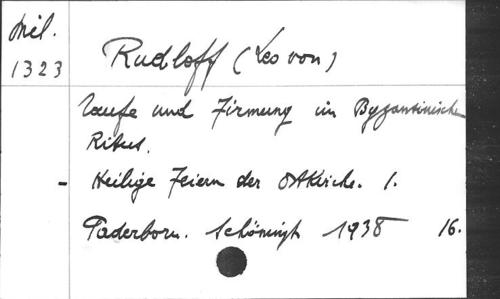 Mil.
1323
Rudloff (Leo von)
Taufe und Firmung im Byzantinischen
Ritus.
- Heilige Feiern der Ostkirche. 1.
Paderborn. Schöningh 1938 16.